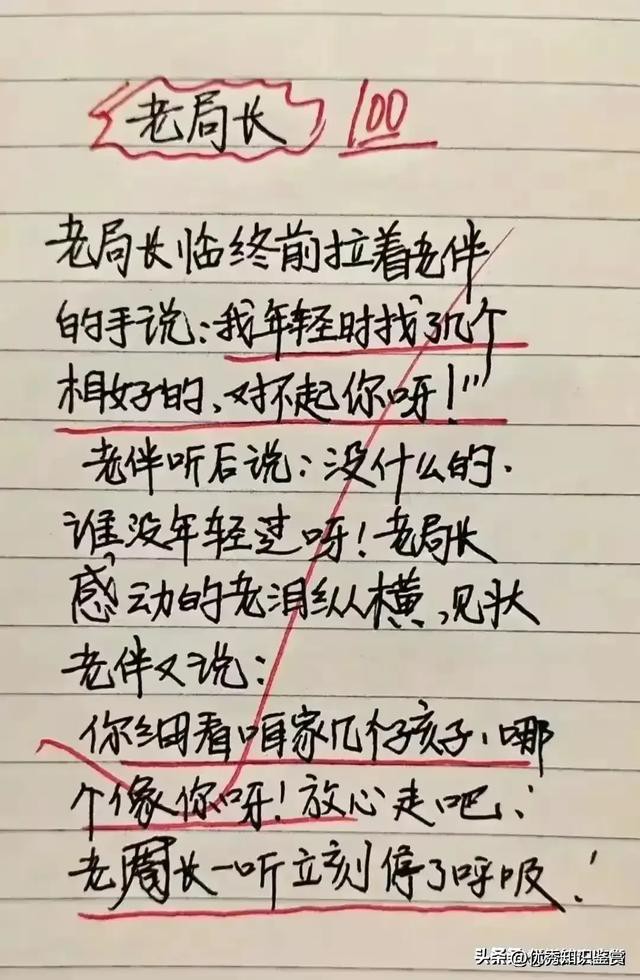 老局长 100
老局长临终前拉着老伴
的手说：我年轻时找了几个
相好的，对不起你呀！
老伴听后说：没什么的．
谁没年轻过呀！老局长
感动的老泪纵横，见状
老伴又说：
你细看咱家几个孩子、哪
个像你呀！放心走吧；
老局长一听立刻停了呼吸！
头条@优秀知识鉴赏